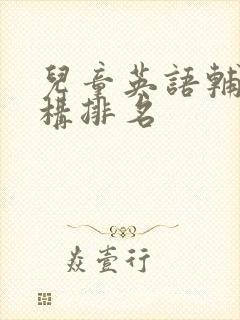 兒童英語輔
構排名
焱壹行